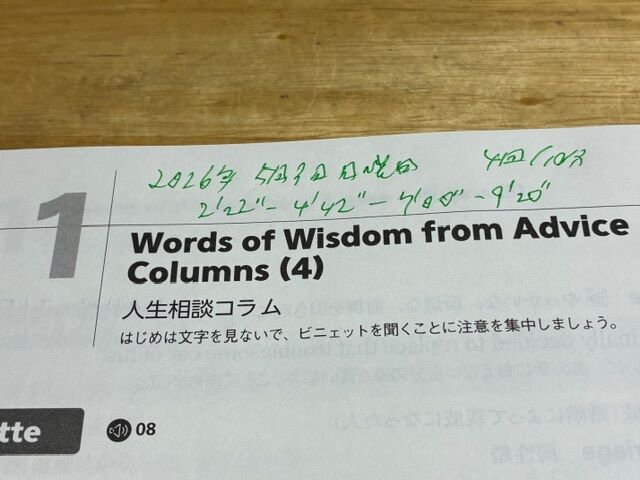 2026年 5月3日 日曜日 4回/10分
2'22" - 4'42" - 7'00" - 9'20"
1
Words of Wisdom from Advice
Columns (4)
人生相談コラム
はじめは文字を見ないで、ビニェットを聞くことに注意を集中しましょう。
tte
08